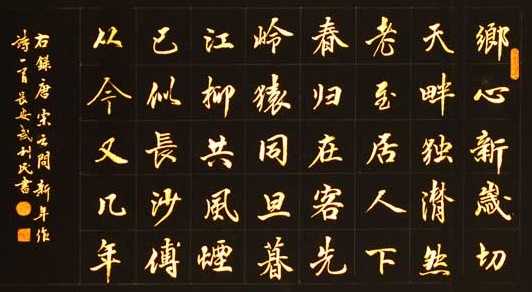 鄉心新歲切
天畔独潸然
老至居人下
春归在客先
岭猿同旦暮
江柳共風煙
已似長沙傅
从今又几年
右錄唐宋之問新年作
詩一首長安武利民書